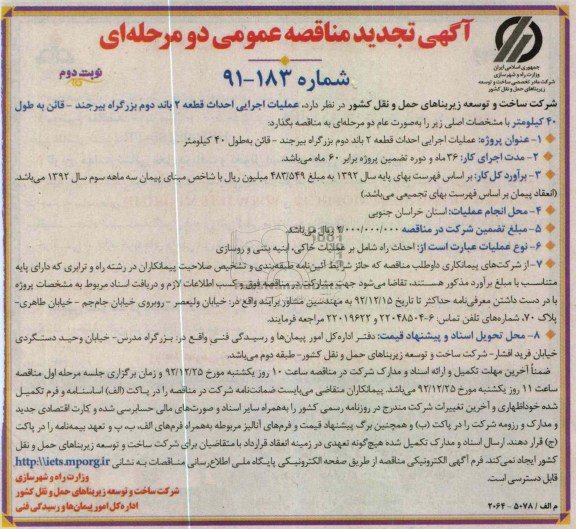 آگهی تجدید مناقصه عمومی دو مرحله‌ای
شماره ۱۸۳-۹۱
نوبت دوم
جمهوری اسلامی ایران
وزارت راه و شهرسازی
شرکت مادر تخصصی ساخت و توسعه
زیربناهای حمل و نقل کشور
شرکت ساخت و توسعه زیربناهای حمل و نقل کشور در نظر دارد، عملیات اجرایی احداث قطعه ۲ باند دوم بزرگراه بیرجند - قائن به طول
۴۰ کیلومتر با مشخصات اصلی زیر را به‌صورت عام دو مرحله‌ای به مناقصه بگذارد:
۱- عنوان پروژه: عملیات اجرایی احداث قطعه ۲ باند دوم بزرگراه بیرجند - قائن به‌طول ۴۰ کیلومتر
۲- مدت اجرای کار: ۳۶ ماه و دوره تضمین پروژه برابر ۶۰ ماه می‌باشد.
۳- برآورد کل کار: بر اساس فهرست بهای پایه سال ۱۳۹۲ به مبلغ ۴۸۳/۵۴۹ میلیون ریال با شاخص مبنای پیمان سه ماهه سوم سال ۱۳۹۲ می‌باشد.
(انعقاد پیمان بر اساس فهرست بهای تجمیعی می‌باشد.)
۴- محل انجام عملیات: استان خراسان جنوبی
۵- مبلغ تضمین شرکت در مناقصه ۲/۰۰۰/۰۰۰/۰۰۰ ریال می‌باشد
۶- نوع عملیات عبارت است از: احداث راه شامل بر عملیات خاکی، ابنیه بتنی و روسازی
۷- از شرکت‌های پیمانکاری داوطلب مناقصه که حائز شرایط آئین‌نامه طبقه‌بندی و تشخیص صلاحیت پیمانکاران در رشته راه و ترابری که دارای پایه
متناسب با مبلغ برآورد مذکور هستند، تقاضا می‌شود جهت مشارکت در مناقصه فوق و کسب اطلاعات لازم و دریافت اسناد مربوط به مشخصات پروژه
با در دست داشتن معرفی‌نامه حداکثر تا تاریخ ۹۲/۱۲/۱۵ به مهندسین مشاور برآیند واقع در: خیابان ولیعصر - روبروی خیابان جام‌جم - خیابان طاهری-
پلاک ۷۰، شماره‌های تلفن تماس: ۶-۲۲۰۴۸۵۰۴ و ۲۲۰۱۹۶۲۲ مراجعه فرمایند.
۸- محل تحویل اسناد و پیشنهاد قیمت: دفتر اداره‌کل امور پیمان‌ها و رسیدگی فنی واقع در: بزرگراه مدرس- خیابان وحید دستگردی
خیابان فرید افشار- شرکت ساخت و توسعه زیربناهای حمل و نقل کشور- طبقه دوم می‌باشد.
ضمناً آخرین مهلت تکمیل و ارائه اسناد و مدارک شرکت در مناقصه ساعت ۱۰ روز یکشنبه مورخ ۹۲/۱۲/۲۵ و زمان برگزاری جلسه مرحله اول مناقصه
ساعت ۱۱ روز یکشنبه مورخ ۹۲/۱۲/۲۵ می‌باشد. پیمانکاران متقاضی می‌بایست ضمانت‌نامه شرکت در مناقصه را در پاکت (الف) اساسنامه و فرم تکمیل
شده خوداظهاری و آخرین تغییرات شرکت مندرج در روزنامه رسمی کشور را به‌همراه سایر اسناد و صورت‌های مالی حسابرسی شده و کارت اقتصادی جدید
و مدارک و رزومه شرکت را در پاکت (ب) و همچنین برگ پیشنهاد قیمت و فرم‌های آنالیز مربوطه به‌همراه فرم‌های الف، ب، پ و تعهد بیمه‌نامه را در پاکت
(ج) قرار دهند. ارسال اسناد و مدارک تکمیل شده هیچ‌گونه تعهدی در زمینه انعقاد قرارداد با متقاضیان برای شرکت ساخت و توسعه زیربناهای حمل و نقل
کشور ایجاد نمی‌کند. فرم آگهی الکترونیکی مناقصه از طریق صفحه الکترونیکی پایگاه ملی اطلاع‌رسانی مناقصات به نشانی http://iets.mporg.ir
قابل دسترسی است.
وزارت راه و شهرسازی
شرکت ساخت و توسعه زیربناهای حمل و نقل کشور
اداره‌کل امور پیمان‌ها و رسیدگی فنی
م الف / ۵۰۷۸ - ۲۰۶۴